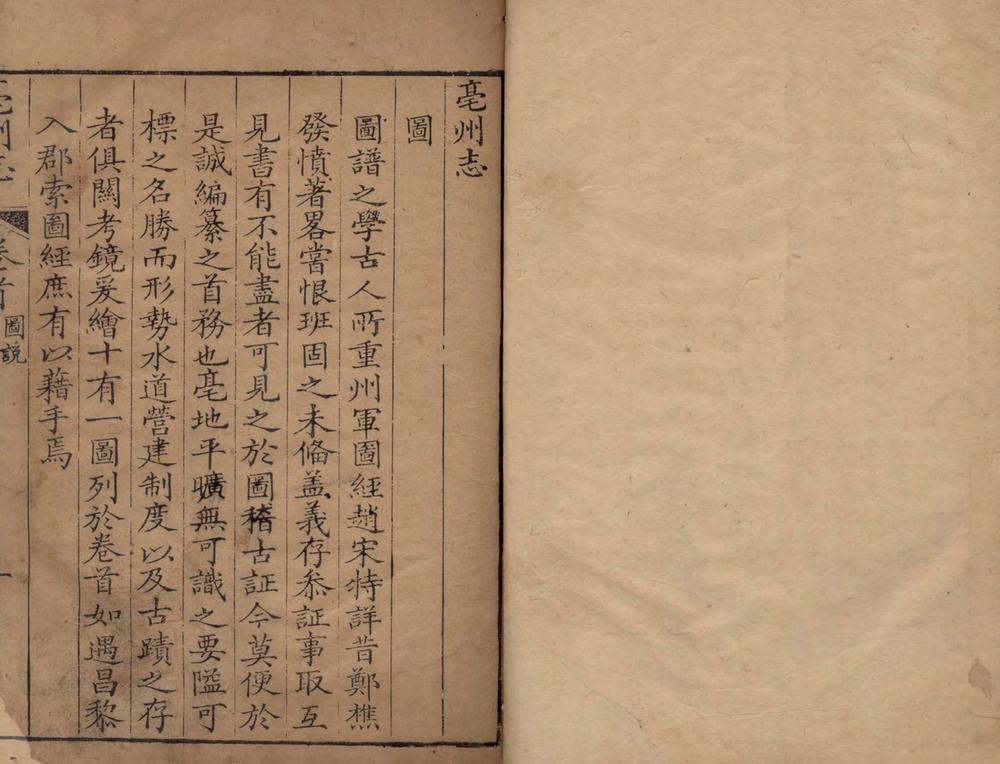 亳州志
圖
圖譜之學古人所重州軍圖經趙宋特詳昔鄭樵
發憤著畧嘗恨班固之未俻盖義存叅証事取互
見書有不能盡者可見之於圖稽古証今莫便於
是誠編纂之首務也亳地平曠無可識之要隘可
標之名勝而形勢水道營建制度以及古蹟之存
者俱關考鏡爰繪十有一圖列於卷首如遇昌黎
入郡索圖經庶有以藉手焉
亳州志
卷首
圖説
一